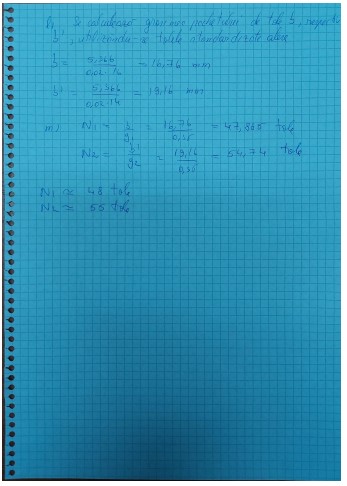 l) Se calculează grosimea pachetului de tole b, respectiv
b', utilizându-se tolele standardizate alese.
b = / 0,02·14 = 16,76 mm
b' = / 0,02·14 = 19,16 mm
m) N1 = b / g1 = 16,76 / 0,35 = 47,885 tole
N2 = b' / g2 = 19,16 / 0,35 = 54,74 tole
N1 ≈ 48 tole
N2 ≈ 55 tole